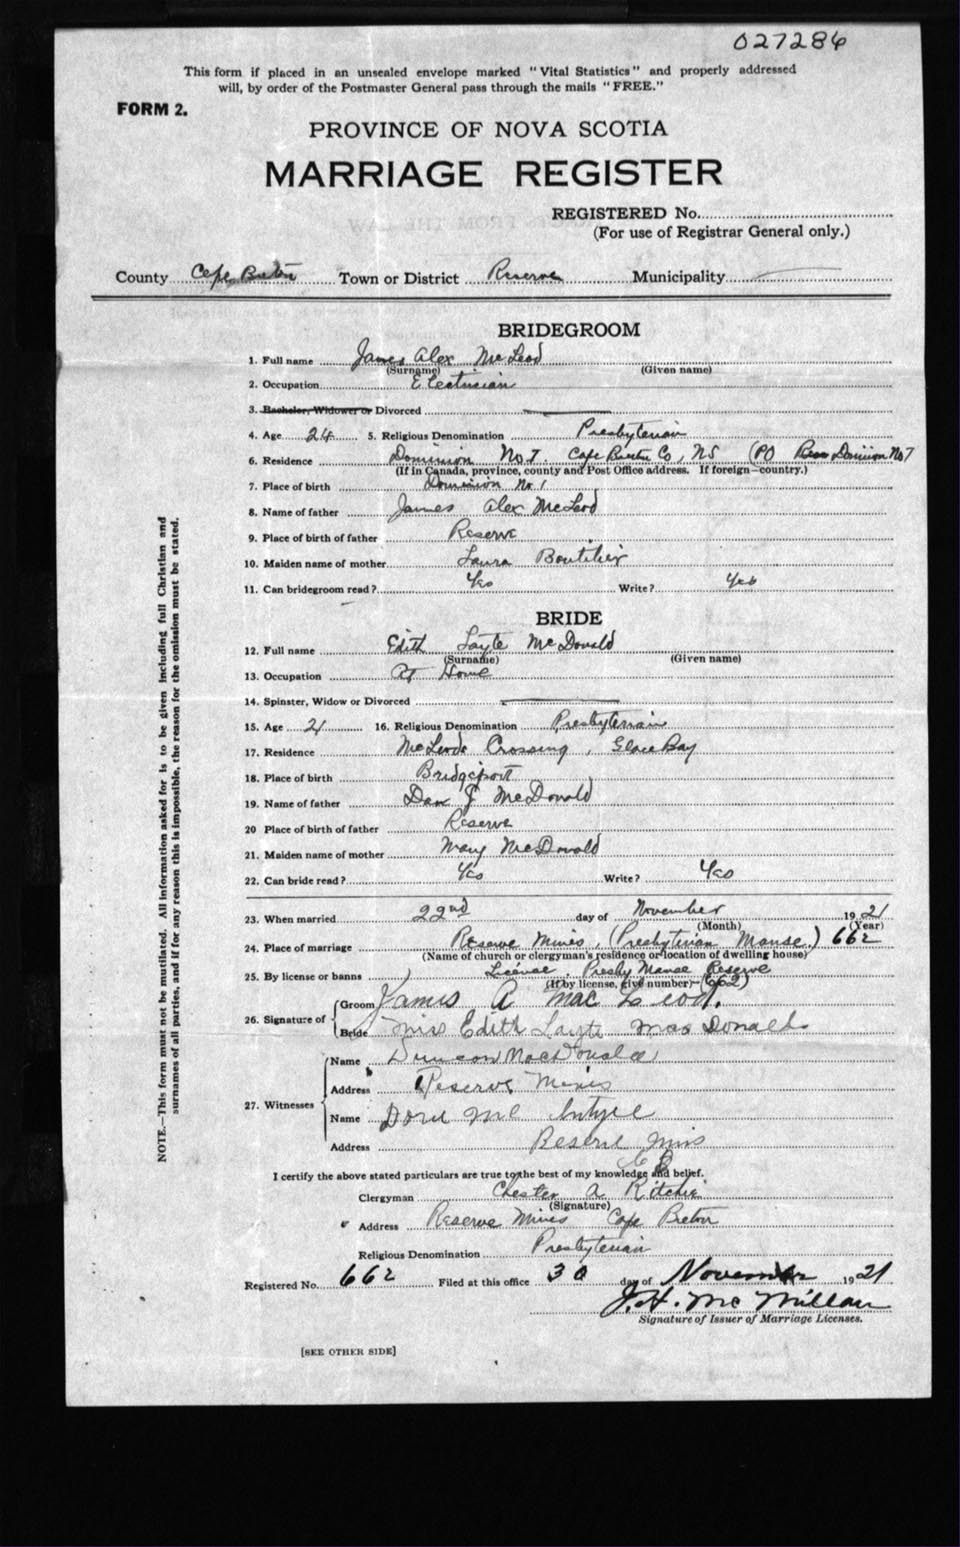 027286
This form if placed in an unsealed envelope marked "Vital Statistics" and properly addressed
will, by order of the Postmaster General pass through the mails "FREE."
FORM 2.
PROVINCE OF NOVA SCOTIA
MARRIAGE REGISTER
REGISTERED No.
(For use of Registrar General only.)
County Cape Breton Town or District Reserve Municipality
BRIDEGROOM
1. Full name James Alex McLeod
(Surname) (Given name)
2. Occupation Electrician
3. Bachelor, Widower or Divorced
4. Age 24 5. Religious Denomination Presbyterian
6. Residence Dominion No. 7. Cape Breton Co, NS (PO Dominion No 7
(If in Canada, province, county and Post Office address. If foreign—country.)
7. Place of birth Dominion No 1
8. Name of father James Alex McLeod
9. Place of birth of father Reserve
10. Maiden name of mother Laura Boutilier
11. Can bridegroom read? Yes Write? Yes
BRIDE
12. Full name Edith Layte McDonald
(Surname) (Given name)
13. Occupation At Home
14. Spinster, Widow or Divorced
15. Age 21 16. Religious Denomination Presbyterian
17. Residence McLeods Crossing, Glace Bay
18. Place of birth Bridgeport
19. Name of father Dan J McDonald
20 Place of birth of father Reserve
21. Maiden name of mother Mary McDonald
22. Can bride read? Yes Write? Yes
23. When married 22nd day of November 1921
(Month) (Year)
24. Place of marriage Reserve Mines, (Presbyterian Manse.) 662
(Name of church or clergyman's residence or location of dwelling house)
25. By license or banns License, Presby Manse Reserve
(If by license, give number)— (662)
26. Signature of
Groom James A MacLeod.
Bride Miss Edith Layte MacDonald
27. Witnesses
Name Duncan MacDonald
Address Reserve Mines
Name McIntyre
Address Reserve Mines
C B
I certify the above stated particulars are true to the best of my knowledge and belief.
Clergyman Chester A Ritchie
(Signature)
Address Reserve Mines Cape Breton
Religious Denomination Presbyterian
Registered No. 662 Filed at this office 30 day of November 1921
J. H. McMillan
Signature of Issuer of Marriage Licenses.
[SEE OTHER SIDE]
NOTE.—This form must not be mutilated. All information asked for is to be given including full Christian and
surnames of all parties, and if for any reason this is impossible, the reason for the omission must be stated.